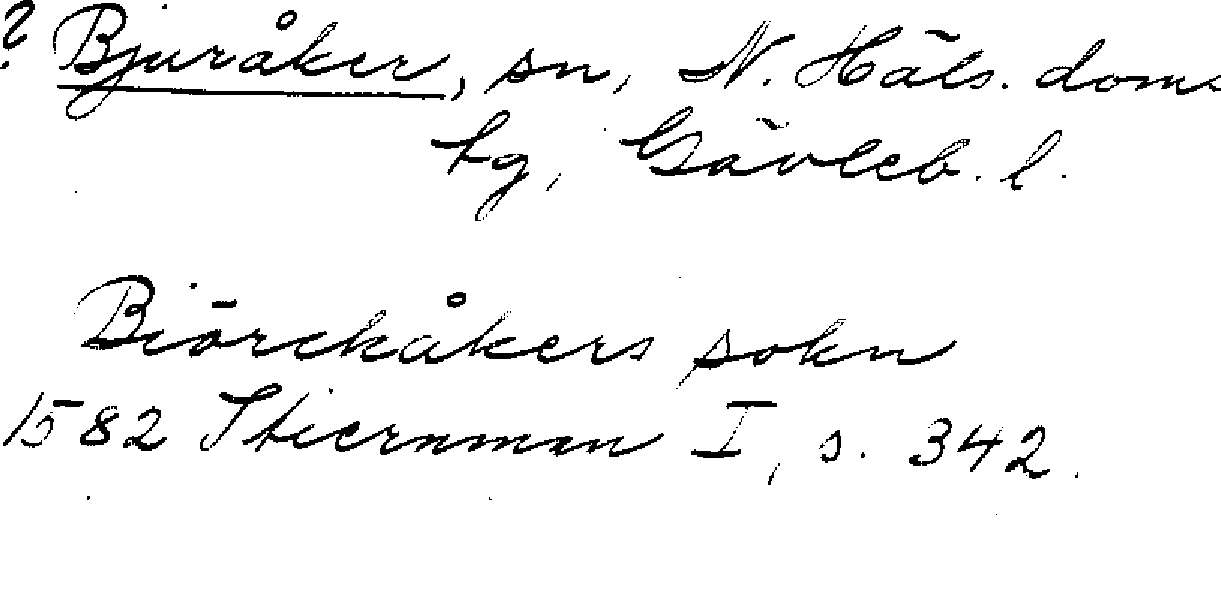 ? Bjuråker, sn, N. Häls. doms
tg, Gävleb. l.
Biörckåkers sokn
1582 Stiernman I, s. 342.